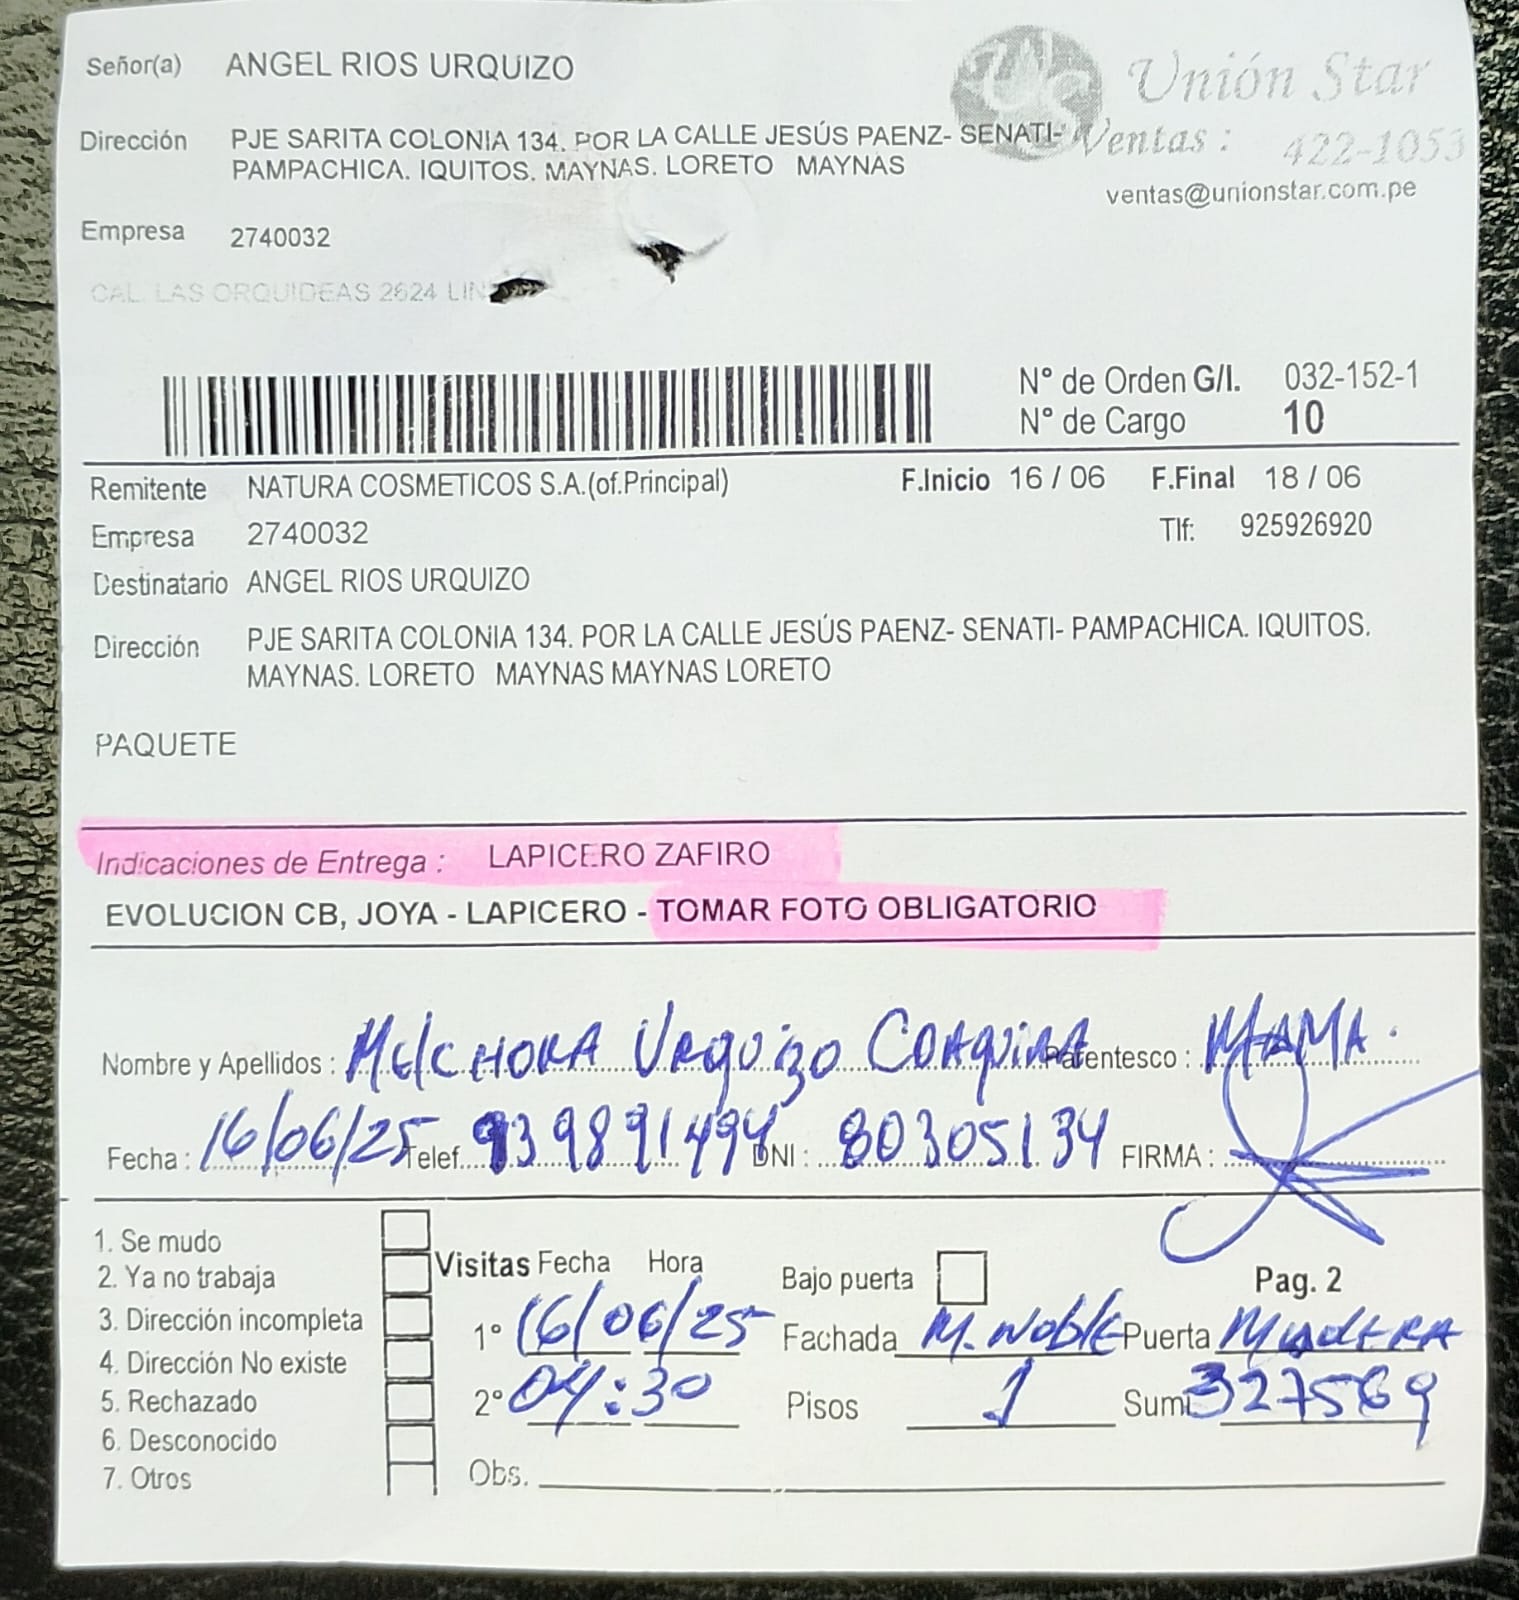 Señor(a) ANGEL RIOS URQUIZO
Unión Star
Dirección PJE SARITA COLONIA 134. POR LA CALLE JESÚS PAENZ- SENATI-
Ventas : 422-1053
PAMPACHICA. IQUITOS. MAYNAS. LORETO MAYNAS
ventas@unionstar.com.pe
Empresa 2740032
CAL. LAS ORQUIDEAS 2624
N° de Orden G/I. 032-152-1
N° de Cargo 10
Remitente NATURA COSMETICOS S.A.(of.Principal) F.Inicio 16 / 06 F.Final 18 / 06
Empresa 2740032 Tlf: 925926920
Destinatario ANGEL RIOS URQUIZO
Dirección PJE SARITA COLONIA 134. POR LA CALLE JESÚS PAENZ- SENATI- PAMPACHICA. IQUITOS.
MAYNAS. LORETO MAYNAS MAYNAS LORETO
PAQUETE
Indicaciones de Entrega : LAPICERO ZAFIRO
EVOLUCION CB, JOYA - LAPICERO - TOMAR FOTO OBLIGATORIO
Nombre y Apellidos : MelCHORA Urquizo COAquirA Parentesco : MAMA.
Fecha : 16/06/25 Telef. 939891494 DNI : 80305134 FIRMA :
1. Se mudo
2. Ya no trabaja
3. Dirección incompleta
4. Dirección No existe
5. Rechazado
6. Desconocido
7. Otros
Visitas Fecha Hora Bajo puerta Pag. 2
1° 16/06/25 Fachada M. NoblE Puerta MAdERA
2° 04:30 Pisos 1 Sumi 327569
Obs.